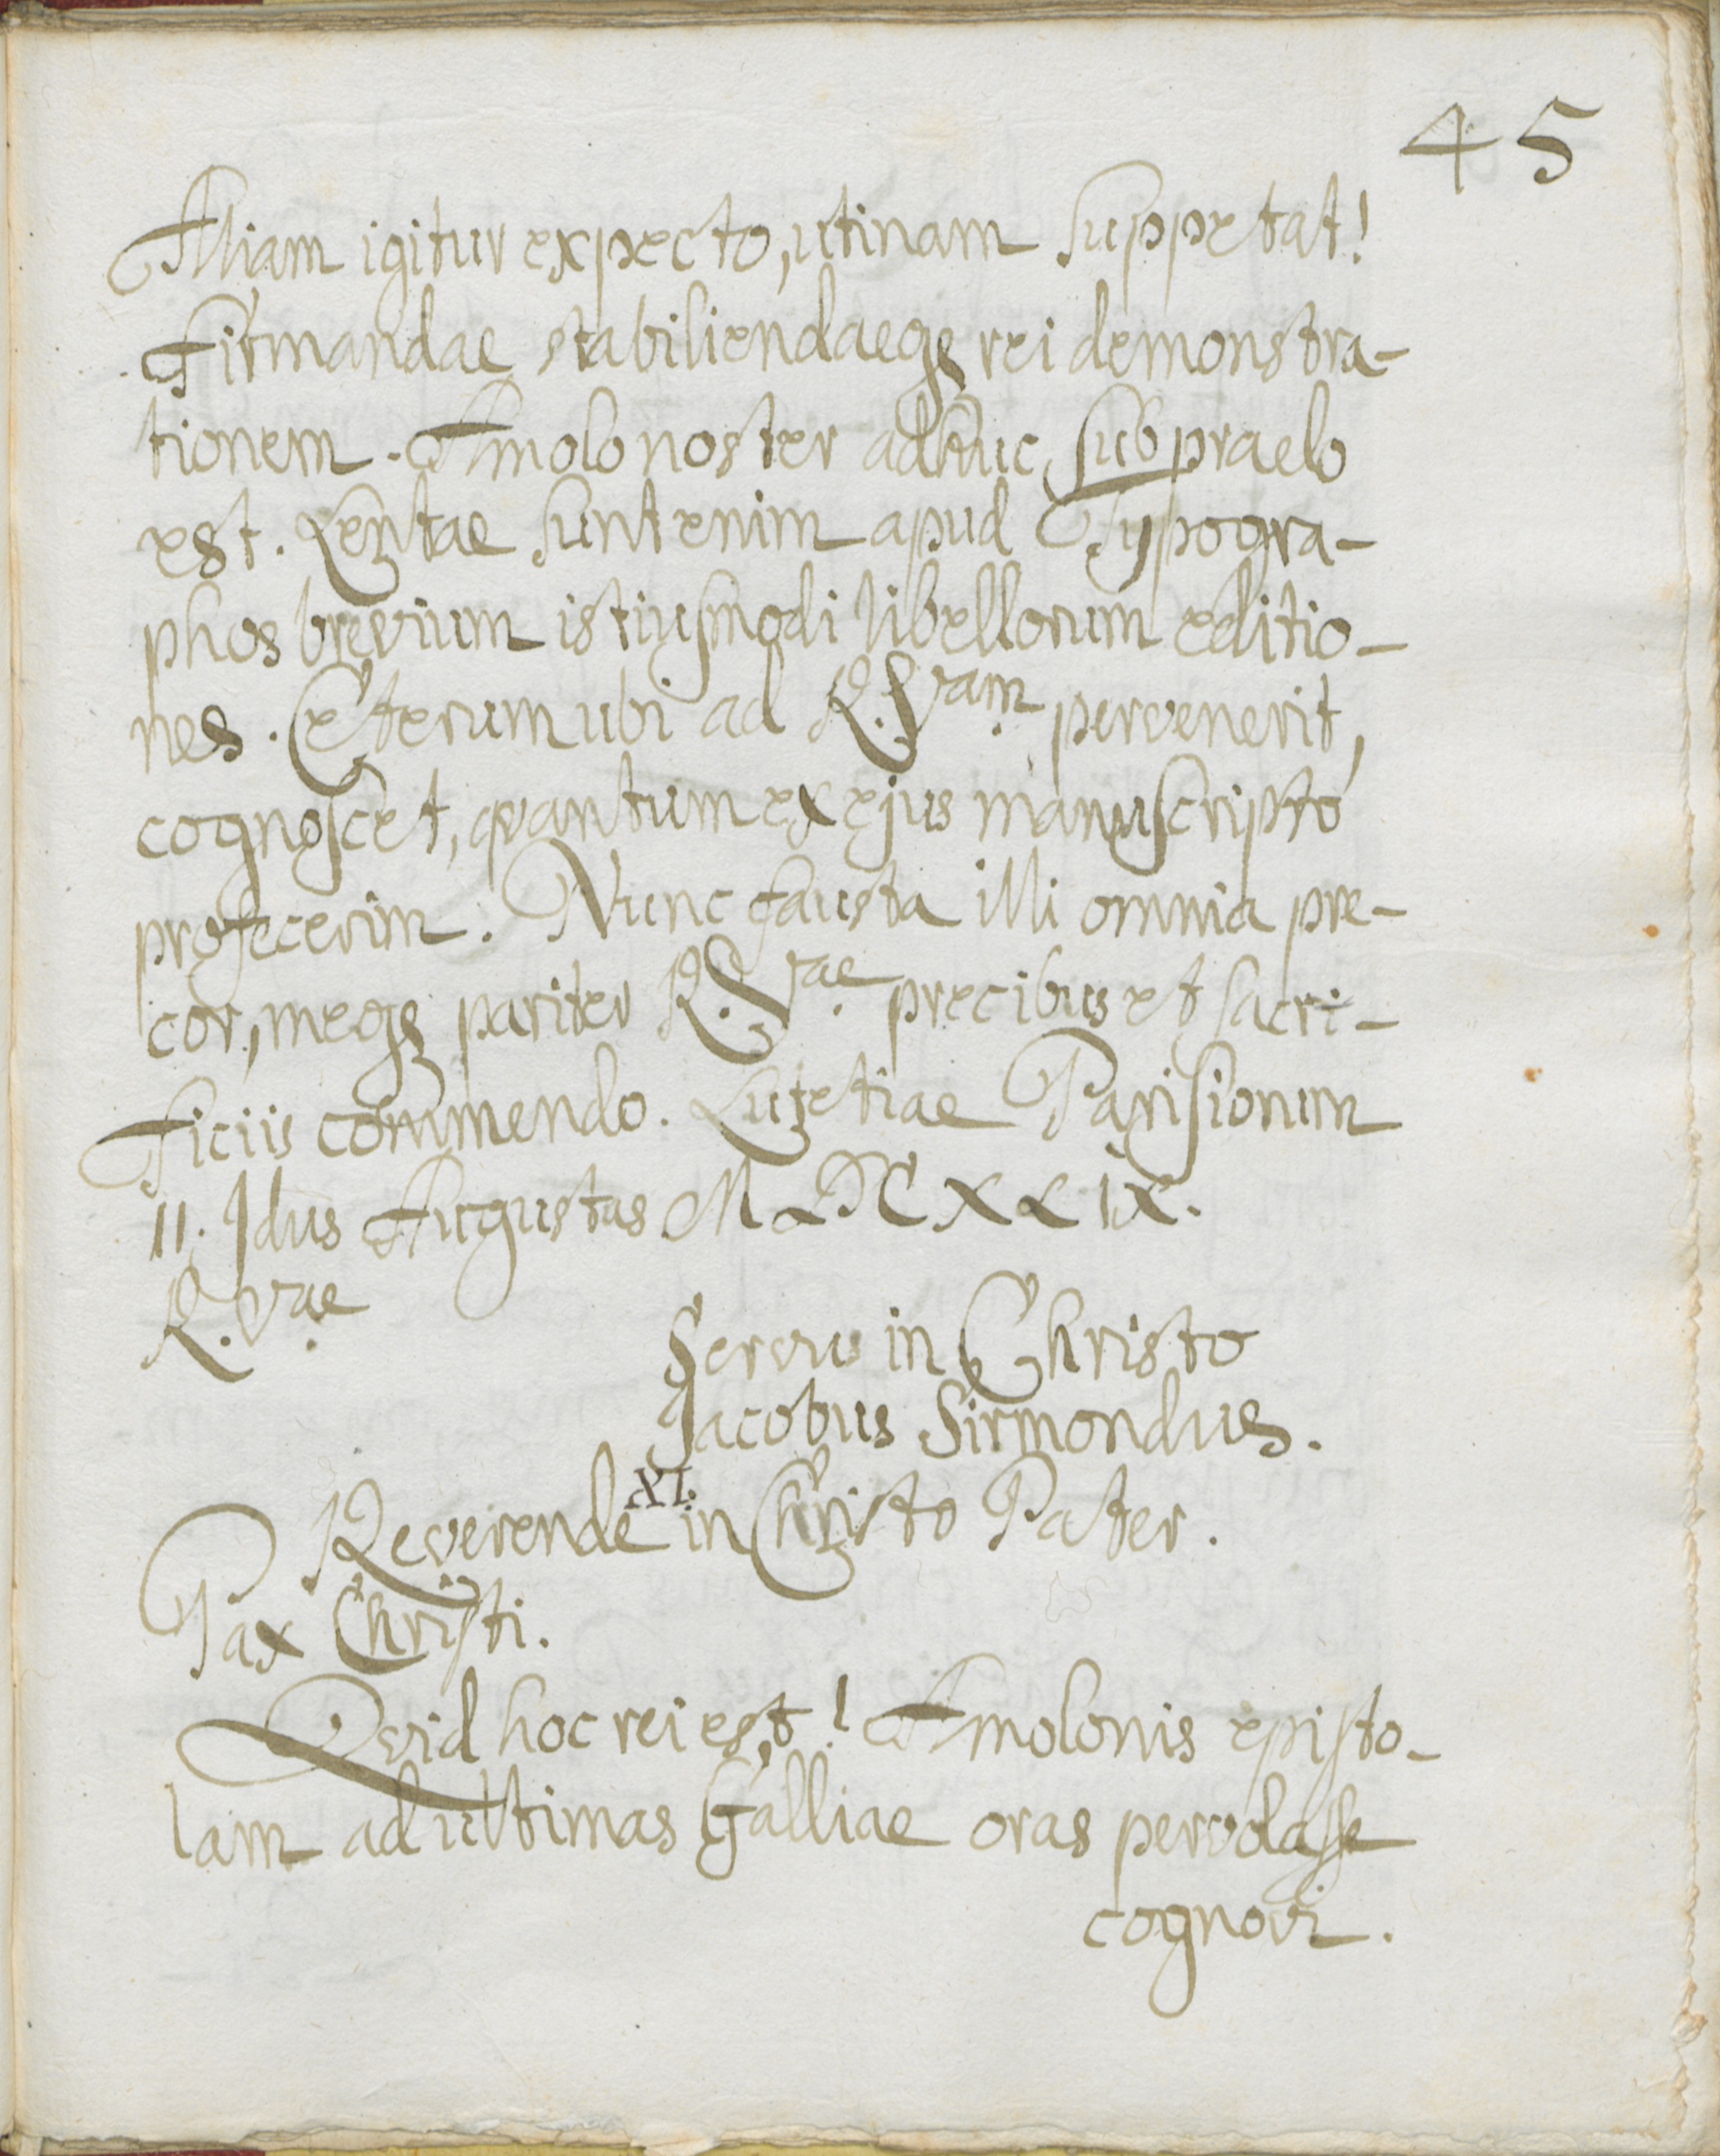 45
Aliam igitur expecto, utinam suppetat!
Firmandae stabiliendaeqꝫ rei demonstra-
tionem. Amolo noster adhuc sub praelo
est. Lentae sunt enim apud Typogra-
phos brevium istiusmodi libellorum editio-
nes. Ceterum ubi ad R. Vam pervenerit,
cognoscet, quantum ex ejus manuscripto
profecerim. Nunc fausta illi omnia pre-
cor, meqꝫ pariter R. Vrae precibus et sacri-
ficiis commendo. Lutetiae Parisiorum
11. Idus Augustas MDCXLIX.
R. Vrae
Servus in Christo
Jacobus Sirmondus.
XI.
Reverende in Christo Pater.
Pax Christi.
Quid hoc rei est! Amolonis episto-
lam ad ultimas Galliae oras pervolasse
cognovi.